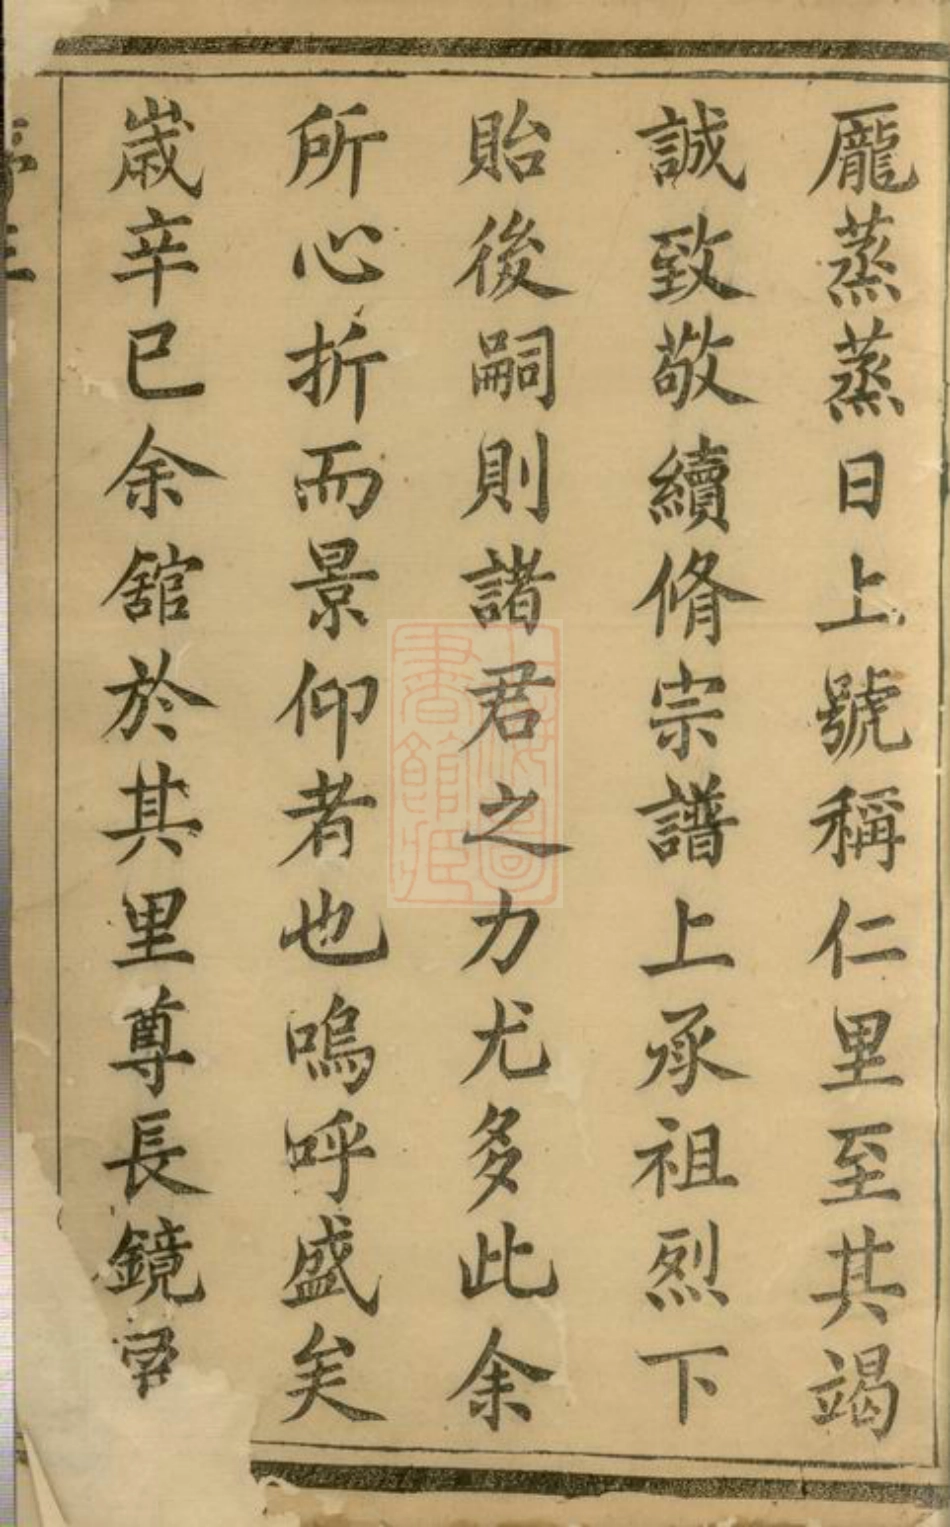 龎蒸蒸日上號稱仁里至其竭
誠致敬續脩宗譜上承祖烈下
貽後嗣則諸君之力尤多此余
所心折而景仰者也嗚呼盛矣
嵗辛巳余舘於其里尊長鏡